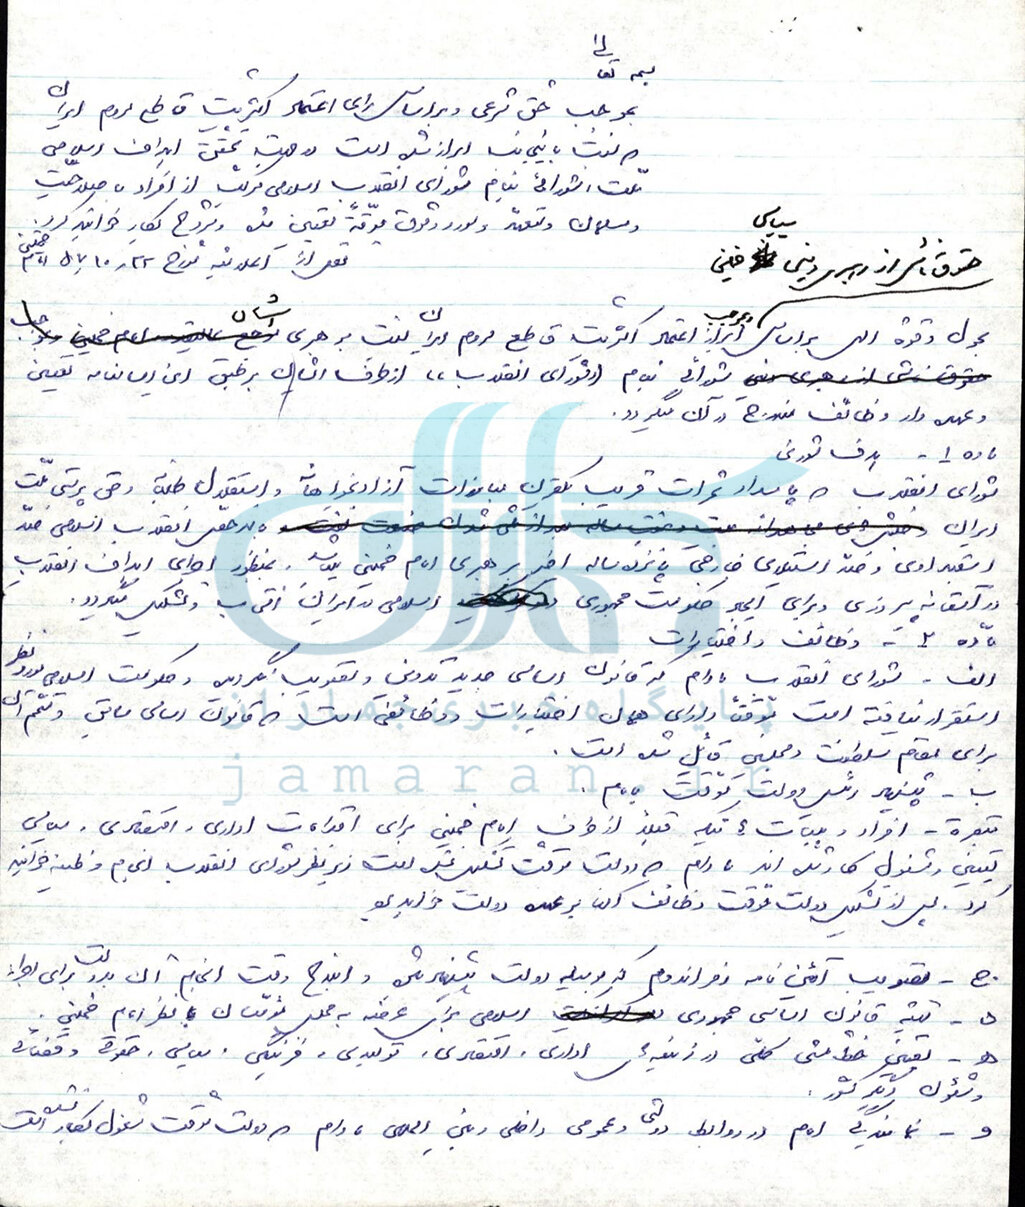 بسمه تعالی
بموجب حق شرعی و براساس رای اعتماد اکثریت قاطع مردم ایران
که نسبت باینجانب ابراز شده است در جهت تحقق اهداف اسلامی
ملت، شورائی بنام شورای انقلاب اسلامی مرکب از افراد با صلاحیت
و مسلمان و متعهد و مورد وثوق موقتاً تعیین شده و شروع بکار خواهند کرد.
نقل از اعلامیه مورخ ۲۲ر۱۰ر۵۷ امام خمینی
حقوق ناشی از رهبری دینی سیاسی خمینی
بحول و قوه الهی براساس ابراز اعتماد اکثریت قاطع مردم ایران نسبت برهبری ایشان
شورائی بنام «شورای انقلاب» از طرف ایشان بر طبق این اساسنامه تعیین
و عهده دار وظائف مندرج در آن میگردد.
ماده ۱ - هدف شوری
شورای انقلاب که پاسدار ثمرات قریب یکقرن مبارزات آزادیخواهانه و استقلال طلبانه و حق پرستی ملت
ایران انقلاب اسلامی ضد
استبدادی و ضد استیلای خارجی پانزده ساله اخیر برهبری امام خمینی میباشد، بمنظور اجرای اهداف انقلاب
در آستانه پیروزی و برای ایجاد حکومت جمهوری اسلامی در ایران انتخاب و تشکیل میگردد.
ماده ۲ - وظائف و اختیارات
الف - شورای انقلاب مادام که قانون اساسی جدید تدوین و تصویب نگردیده و حکومت اسلامی مورد نظر
استقرار نیافته است موقتاً دارای همان اختیارات و وظائفی است که قانون اساسی سابق و متمم آن
برای مقام سلطنت و مجلسین قائل شده است.
ب - پیشنهاد رئیس دولت موقت بامام.
تبصره - افراد و هیئت هائی که قبلاً از طرف امام خمینی برای اقدامات اداری، اقتصادی، سیاسی
تعیین و مشغول کار شده اند مادام که دولت موقت تشکیل نشده است زیر نظر شورای انقلاب انجام وظیفه خواهند
کرد. پس از تشکیل دولت موقت وظائف آنها بر عهده دولت خواهد بود
ج - تصویب آئین نامه رفراندوم که بوسیله دولت پیشنهاد شده و ابلاغ وقت انجام آن بدولت برای اجراء
د - تهیه قانون اساسی جمهوری اسلامی برای عرضه به مجلس مؤسسان با نظر امام خمینی.
ه - تعیین خط مشی کلی در زمینه های اداری، اقتصادی، تولیدی، فرهنگی، سیاسی، حقوقی و قضائی
و شئون دیگر کشور.
و - نمایندگی امام در روابط دولتی و عمومی داخلی و بین المللی مادام که دولت موقت مشغول بکار نشده است
پایگاه خبری جماران
jamaran.ir